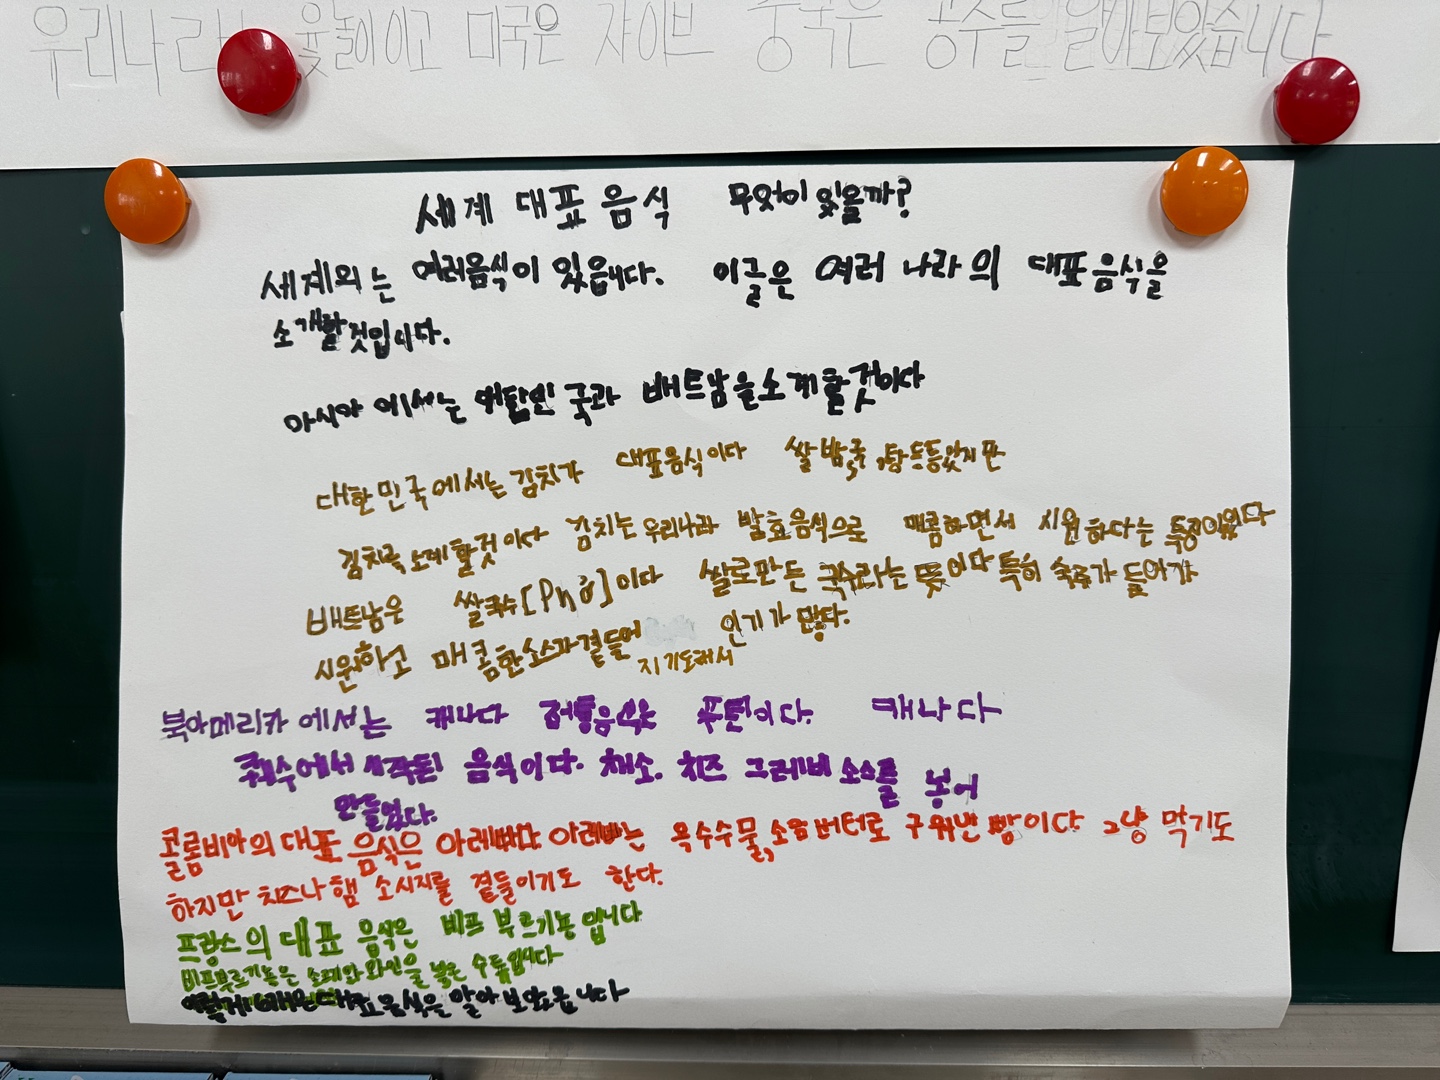 우리나라는 윷놀이이고 미국은 쟈이브 중국은 공수를 알아보았습니다
세계 대표 음식 무엇이 있을까?
세계의는 여러음식이 있읍니다. 이글은 여러 나라의 대표 음식을
소개할것입니다.
아시아 에서는 국과 배트남을소개할것이다
대한민국에서는 김치가 대표음식이다 쌀밥,국,탕등등있지만
김치를 소게할것이다 김치는 우리나라 발효음식으로 매콤하면서 시원하다는 특징이있다
배트남은 쌀국수[Phở]이다 쌀로만든 국수라는 뜻이다 특히 숙주가 들어가
시원하고 매콤한소스가곁들어 지기도해서 인기가 많다.
북아메리카에서는 캐나다 푸틴이다. 캐나다
퀘백수에서 시작된 음식이다. 채소. 치즈 그레비소스를 넣어
만들었다.
콜롬비아의 대표 음식은 아레빠다 아레빠는 옥수수물,소음버터로 구워낸빵이다 그냥 먹기도
하지만 치즈나햄 소시지를 곁들이기도 한다.
프랑스의 대표 음식은 비프 부르기뇽 입니다
비프부르기뇽은 와인을 넣은
이렇게 대표음식을 알아 보았습니다